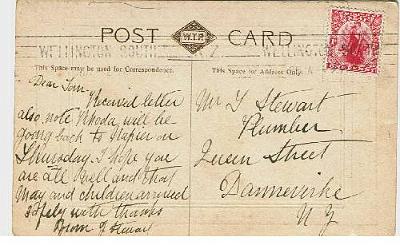 POST CARD
W.T.P.
WELLINGTON SOUTH N Z
WELLINGTON
This Space may be used for Correspondence.
This Space for Address Only.
Dear Tom
Received letter
also note Rhoda will be
going back to Napier on
Thursday. I hope you
are all well and that
May and children arrived
safely with thanks
from J Stewart
Mr T Stewart
Plumber
Queen Street
Dannevirke
N Z